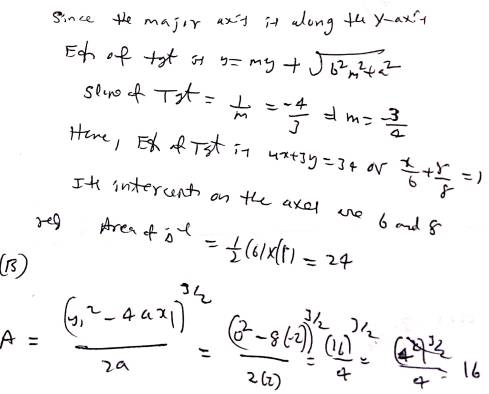 Since the major axis is along the Y-axis
Eqn of tgt is y = my + √b²m²+a²
Slope of Tgt = 1/m = -4/3 ⇒ m = -3/4
Hence, Eqn of Tgt is 4x+3y=34 or x/6 + y/8 = 1
Its intercepts on the axes are 6 and 8
Area of Δle = 1/2 (6)x(8) = 24
(B)
A = (y₁² - 4ax₁)^3/2 / 2a = (0² - 8(-2))^3/2 / 2(2) = (16)^3/2 / 4 = (4²)^3/2 / 4 = 16